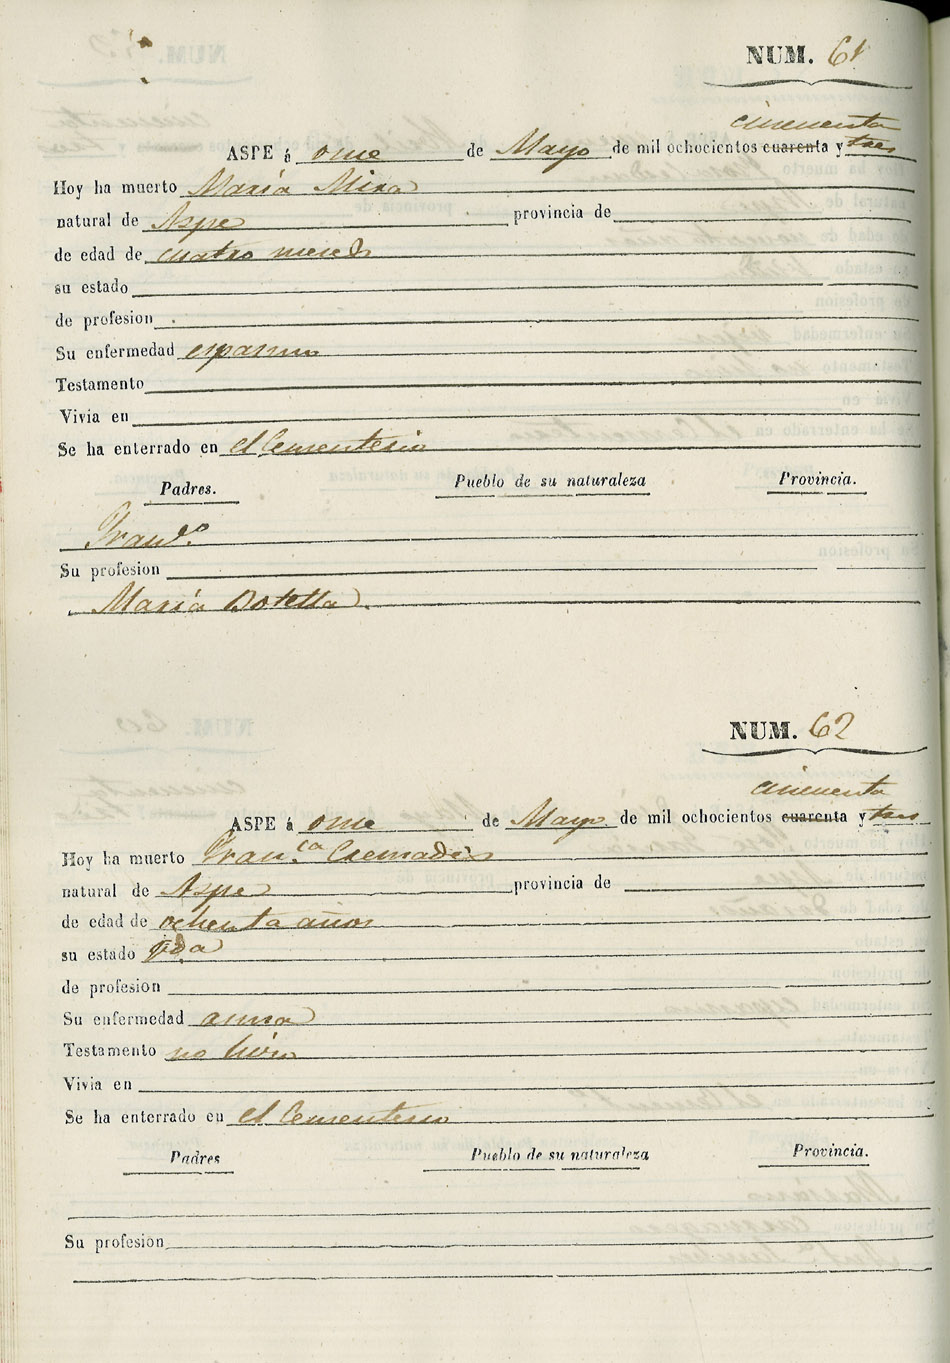 NUM. 61
cincuenta
ASPE á once de Mayo de mil ochocientos cuarenta y tres
Hoy ha muerto Maria Mira
natural de Aspe provincia de
de edad de cuatro meses
su estado
de profesion
Su enfermedad espasmo
Testamento
Vivia en
Se ha enterrado en el Cementerio
Padres. Pueblo de su naturaleza Provincia.
Franco.
Su profesion
Maria Botella
NUM. 62
cincuenta
ASPE á once de Mayo de mil ochocientos cuarenta y tres
Hoy ha muerto Franca Cremades
natural de Aspe provincia de
de edad de ochenta años
su estado
de profesion
Su enfermedad asma
Testamento no hizo
Vivia en
Se ha enterrado en el Cementerio
Padres Pueblo de su naturaleza Provincia.
Su profesion